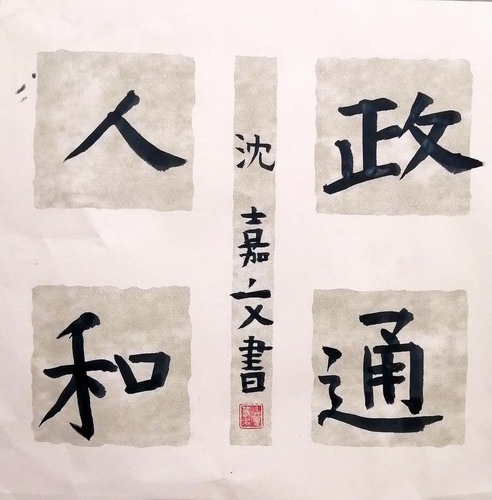 政通
人和
沈嘉文書